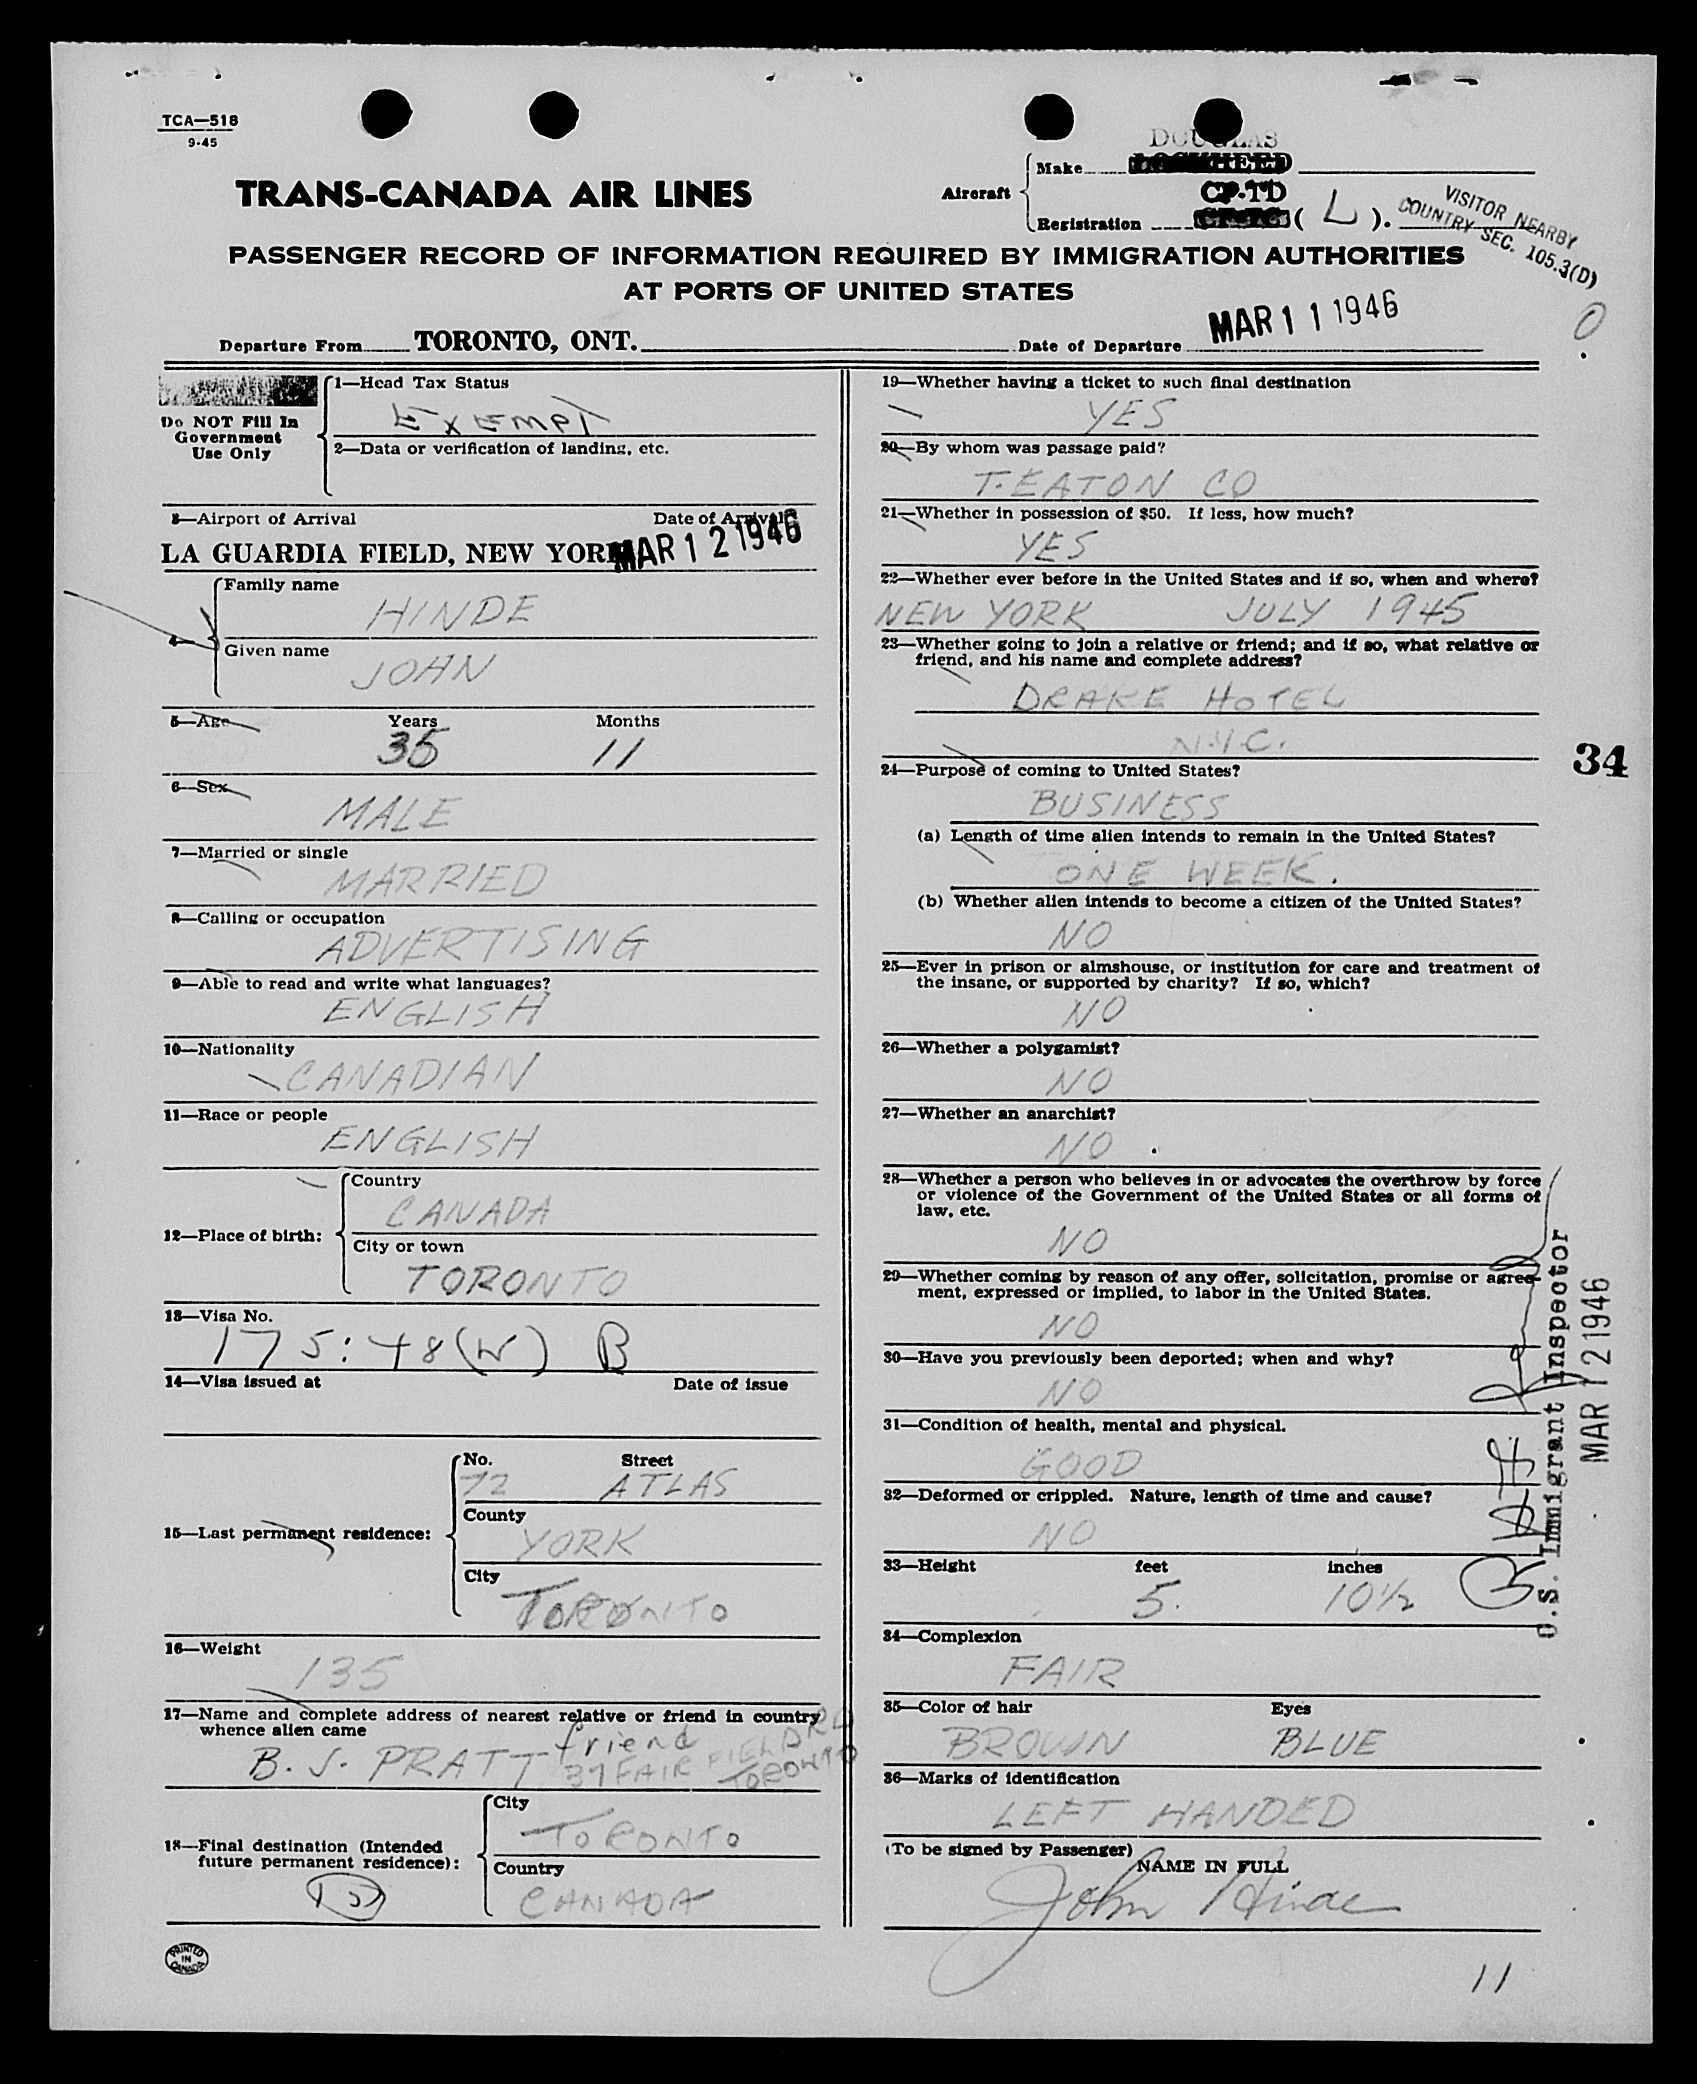 TCA—518
9-45
DOUGLAS
Make
LOCKHEED
TRANS-CANADA AIR LINES
Aircraft
CF-TD
Registration ( L ).
VISITOR NEARBY
COUNTRY SEC. 105.3(D)
PASSENGER RECORD OF INFORMATION REQUIRED BY IMMIGRATION AUTHORITIES
AT PORTS OF UNITED STATES
Departure From TORONTO, ONT. Date of Departure MAR 11 1946
0
Do NOT Fill In
Government
Use Only
1—Head Tax Status
EXEMPT
2—Data or verification of landing, etc.
3—Airport of Arrival Date of Arrival
LA GUARDIA FIELD, NEW YORK MAR 12 1946
4—
Family name
HINDE
Given name
JOHN
5—Age Years Months
35 11
6—Sex
MALE
7—Married or single
MARRIED
8—Calling or occupation
ADVERTISING
9—Able to read and write what languages?
ENGLISH
10—Nationality
CANADIAN
11—Race or people
ENGLISH
12—Place of birth:
Country
CANADA
City or town
TORONTO
13—Visa No.
175:48(W) B
14—Visa issued at Date of issue
15—Last permanent residence:
No. Street
72 ATLAS
County
YORK
City
TORONTO
16—Weight
135
17—Name and complete address of nearest relative or friend in country
whence alien came
friend
B. J. PRATT 37 FAIRFIELD RD
TORONTO
18—Final destination (Intended
future permanent residence):
City
TORONTO
Country
CANADA
PRINTED
IN
CANADA
19—Whether having a ticket to such final destination
YES
20—By whom was passage paid?
T. EATON CO
21—Whether in possession of $50. If less, how much?
YES
22—Whether ever before in the United States and if so, when and where?
NEW YORK JULY 1945
23—Whether going to join a relative or friend; and if so, what relative or
friend, and his name and complete address?
DRAKE HOTEL
N.Y.C.
24—Purpose of coming to United States?
BUSINESS
(a) Length of time alien intends to remain in the United States?
ONE WEEK.
(b) Whether alien intends to become a citizen of the United States?
NO
25—Ever in prison or almshouse, or institution for care and treatment of
the insane, or supported by charity? If so, which?
NO
26—Whether a polygamist?
NO
27—Whether an anarchist?
NO
28—Whether a person who believes in or advocates the overthrow by force
or violence of the Government of the United States or all forms of
law, etc.
NO
29—Whether coming by reason of any offer, solicitation, promise or agree-
ment, expressed or implied, to labor in the United States.
NO
30—Have you previously been deported; when and why?
NO
31—Condition of health, mental and physical.
GOOD
32—Deformed or crippled. Nature, length of time and cause?
NO
33—Height feet inches
5. 10½
34—Complexion
FAIR
35—Color of hair Eyes
BROWN BLUE
36—Marks of identification
LEFT HANDED
(To be signed by Passenger)
NAME IN FULL
John Hinde
34
U.S. Immigrant Inspector
MAR 12 1946
11